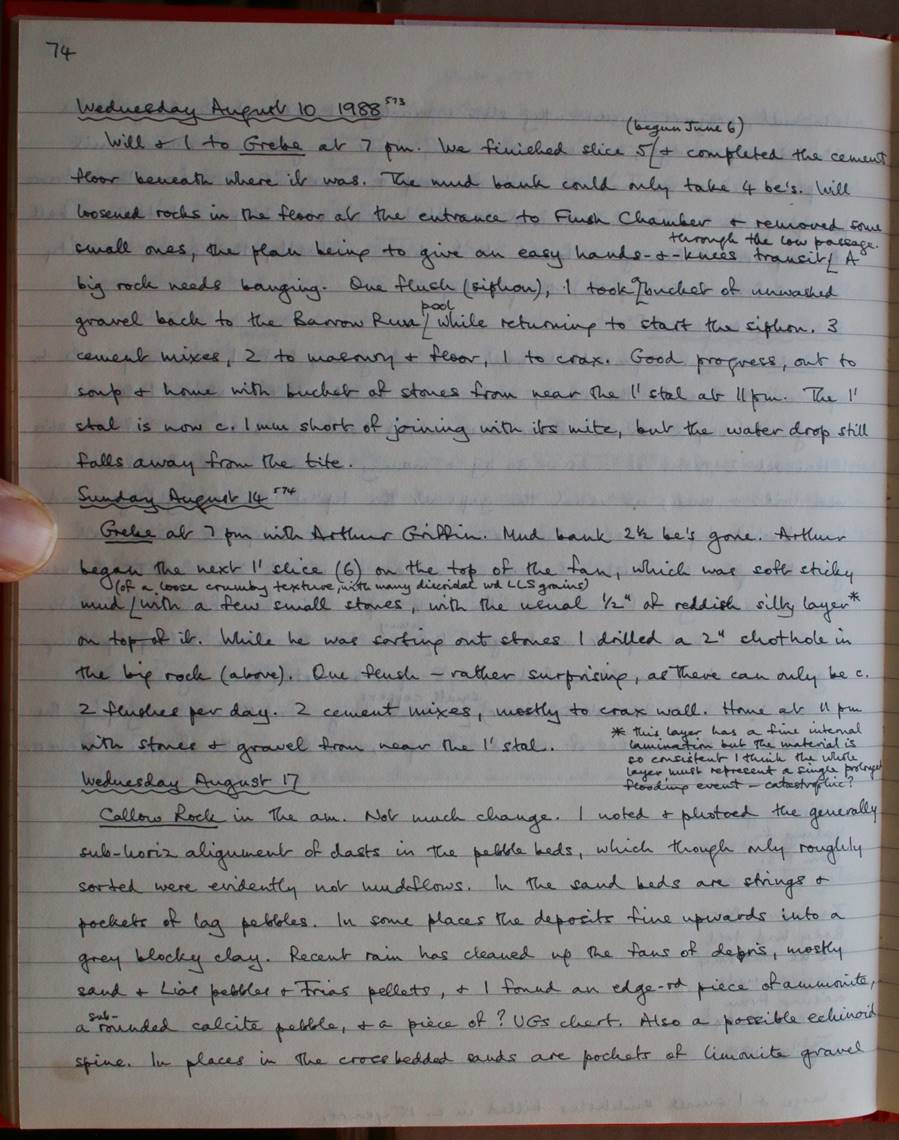 74
Wednesday August 10 1988 573
(begun June 6)
Will & I to Grebe at 7 pm. We finished slice 5 & completed the cement
floor beneath where it was. The mud bank could only take 4 bc's. Will
loosened rocks in the floor at the entrance to Flush Chamber & removed some
through the low passage.
small ones, the plan being to give an easy hands-&-knees transit A
big rock needs banging. One flush (siphon), I took a bucket of unwashed
pool
gravel back to the Barrow Run while returning to start the siphon. 3
cement mixes, 2 to masonry & floor, 1 to crax. Good progress, out to
soup & home with bucket of stones from near the 1' stal at 11 pm. The 1'
stal is now c. 1 mm short of joining with its mite, but the water drop still
falls away from the tite.
Sunday August 14 574
Grebe at 7 pm with Arthur Griffin. Mud bank 2½ bc's gone. Arthur
began the next 1' slice (6) on the top of the fan, which was soft sticky
(of a loose crumby texture, with many discoidal wd LLS grains)
mud with a few small stones, with the usual ½" of reddish silky layer*
on top of it. While he was sorting out stones I drilled a 2" shothole in
the big rock (above). One flush – rather surprising, as there can only be c.
2 flushes per day. 2 cement mixes, mostly to crax wall. Home at 11 pm
with stones & gravel from near the 1' stal.
* this layer has a fine internal
lamination but the material is
so consistent I think the whole
layer must represent a single prolonged
flooding event – catastrophic?
Wednesday August 17
Callow Rock in the am. Not much change. I noted & photoed the generally
sub-horiz alignment of clasts in the pebble beds, which though only roughly
sorted were evidently not mudflows. In the sand beds are strings &
pockets of lag pebbles. In some places the deposits fine upwards into a
grey blocky clay. Recent rain has cleaned up the fans of debris, mostly
sand & Lias pebbles & Trias pellets, & I found an edge-rd piece of ammonite,
a sub-rounded calcite pebble, & a piece of ? UGS chert. Also a possible echinoid
spine. In places in the crossbedded sands are pockets of limonite gravel